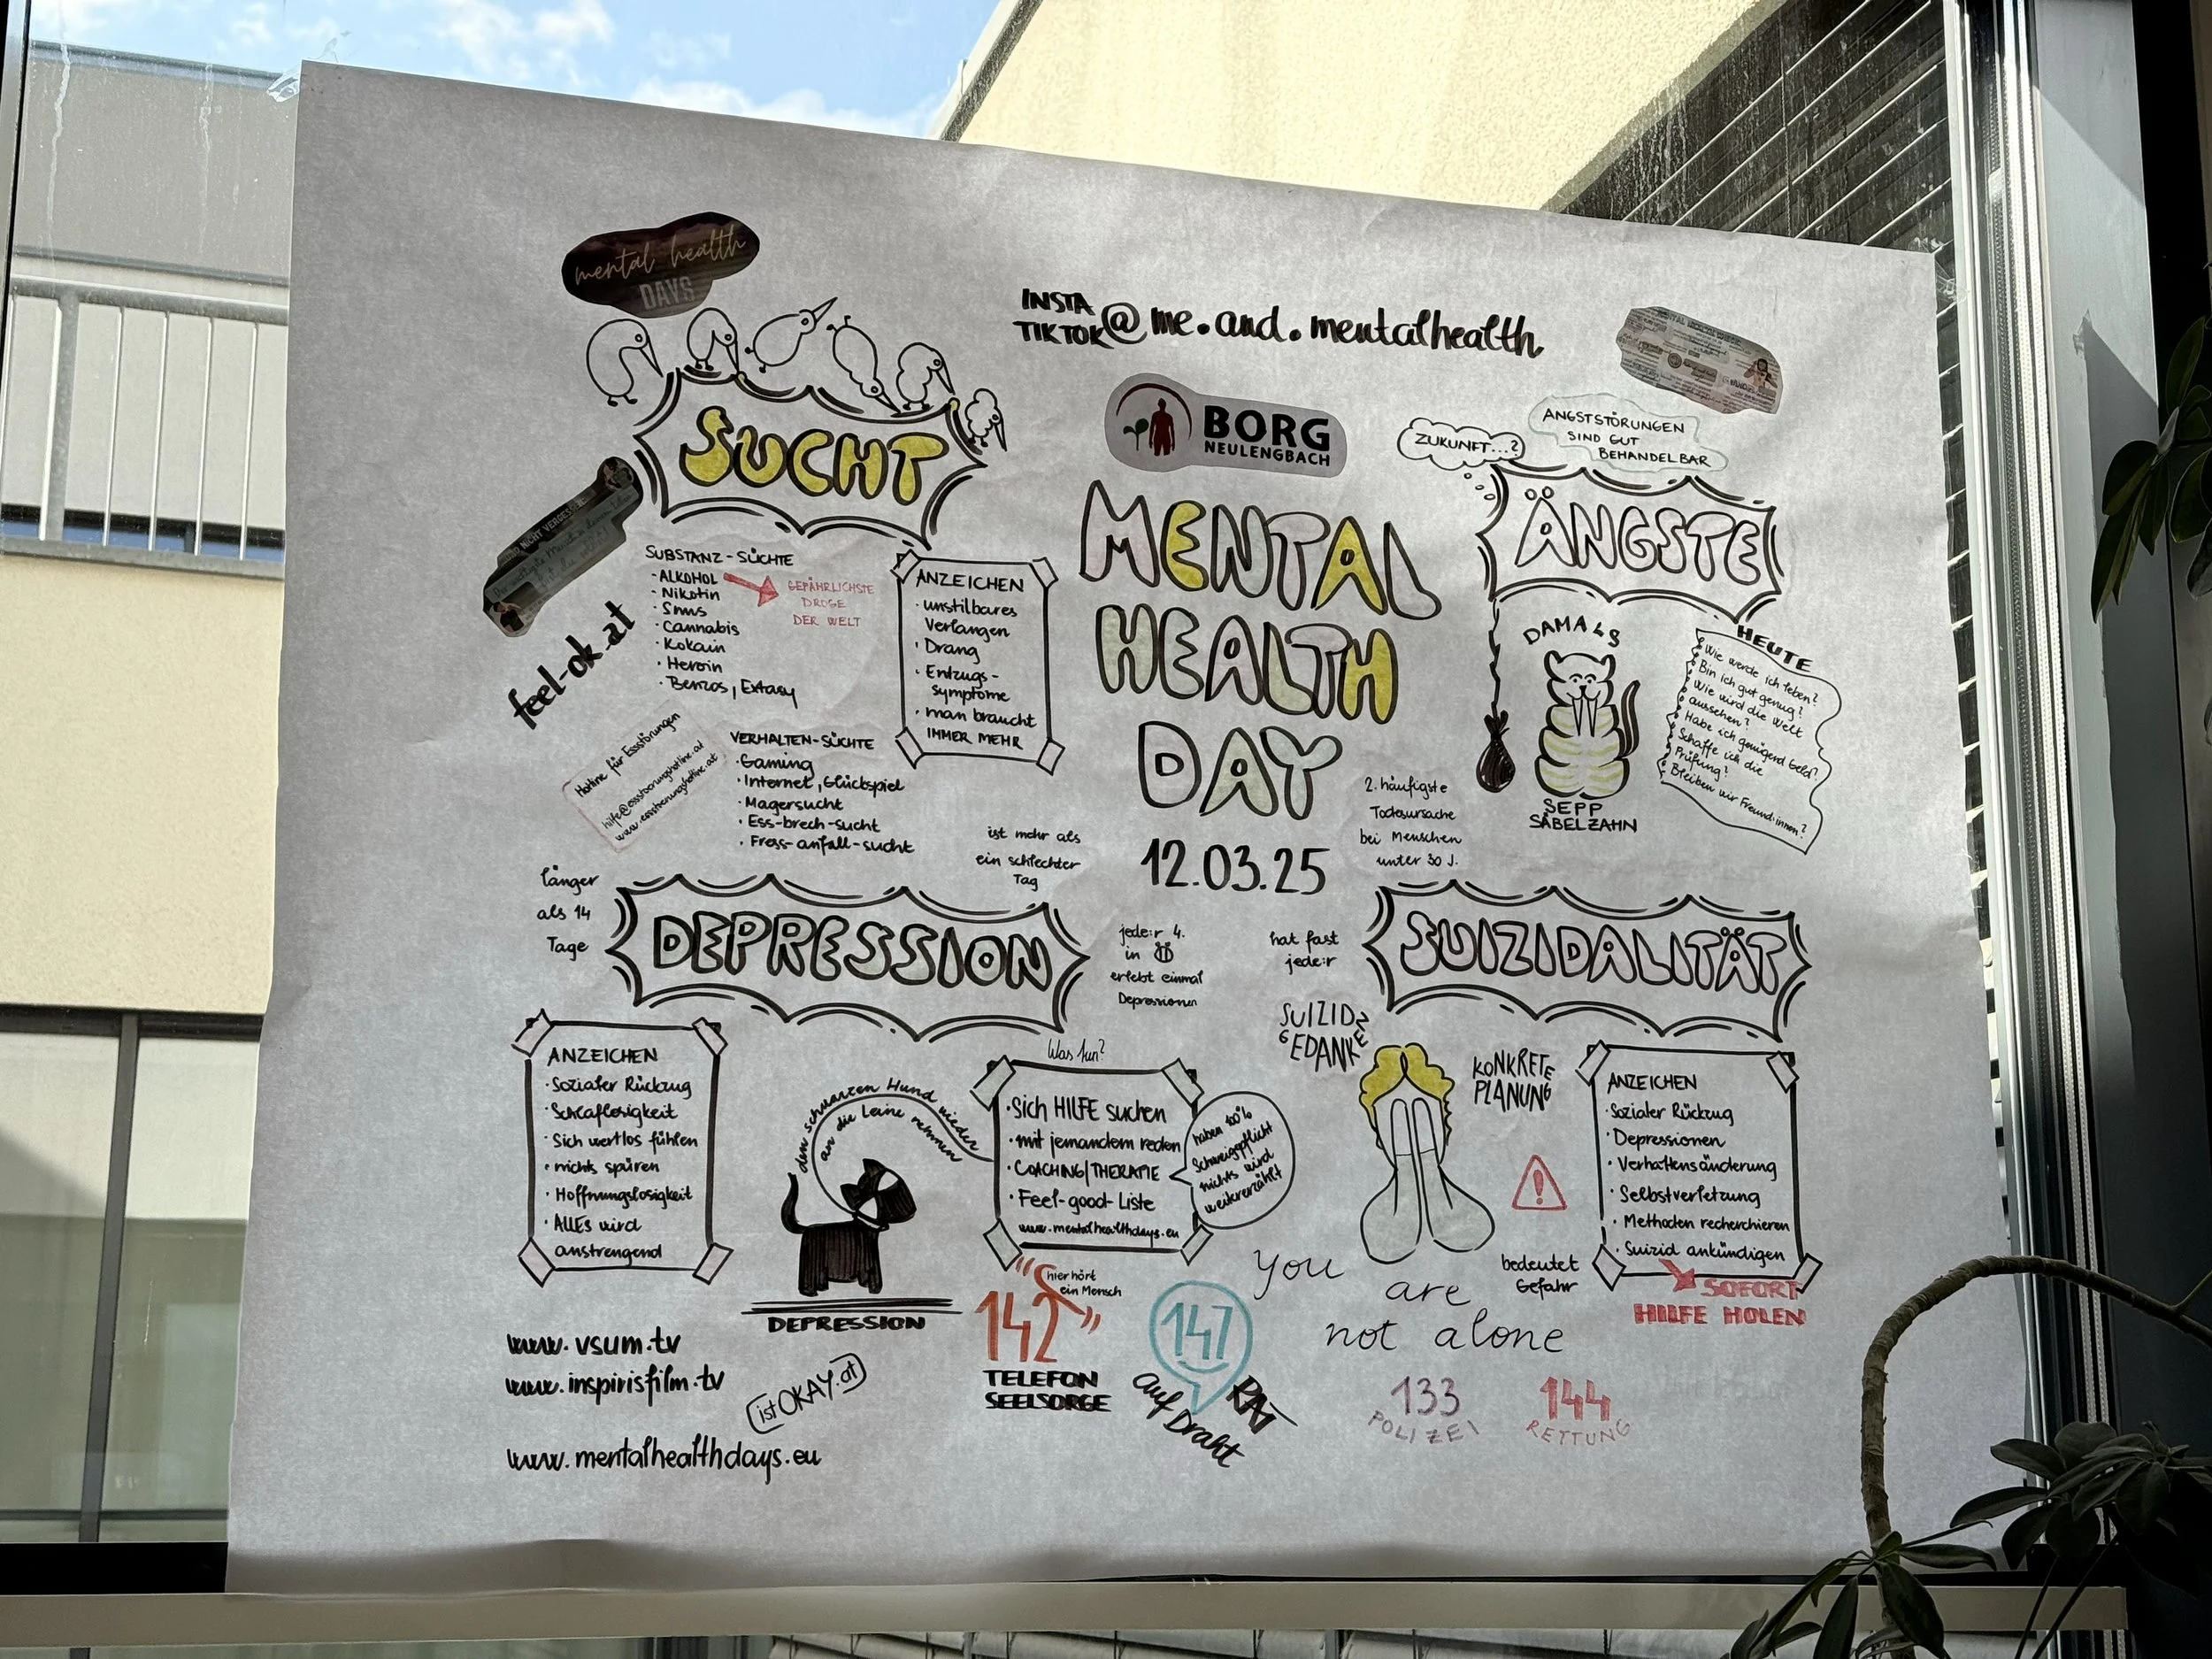 mental health
DAYS
INSTA
TIKTOK @me.and.mentalhealth
BORG
NEULENGBACH
MENTAL
HEALTH
DAY
12.03.25
SUCHT
SUBSTANZ-SÜCHTE
- ALKOHOL
GEFÄHRLICHSTE
DROGE
DER WELT
- Nikotin
- Snus
- Cannabis
- Kokain
- Heroin
- Benzos, Extasy
ANZEICHEN
· unstilbares
Verlangen
· Drang
· Entzugs-
symptome
· man braucht
IMMER MEHR
feel-ok.at
Hotline für Essstörungen
hilfe@essstoerungshotline.at
www.essstoerungshotline.at
VERHALTEN-SÜCHTE
· Gaming
· Internet, Glückspiel
· Magersucht
· Ess-brech-sucht
· Fress-anfall-sucht
ZUKUNFT...?
ANGSTSTÖRUNGEN
SIND GUT
BEHANDELBAR
ÄNGSTE
DAMALS
SEPP
SÄBELZAHN
HEUTE
Wie werde ich leben?
Bin ich gut genug?
Wie wird die Welt
aussehen?
Habe ich genügend Geld?
Schaffe ich die
Prüfung?
Bleiben wir Freund:innen?
länger
als 14
Tage
ist mehr als
ein schlechter
Tag
DEPRESSION
jede:r 4.
in
erlebt einmal
Depressionen
ANZEICHEN
· Sozialer Rückzug
· Schlaflosigkeit
· Sich wertlos fühlen
· nichts spüren
· Hoffnungslosigkeit
· ALLES wird
anstrengend
den schwarzen Hund wieder
an die Leine nehmen
DEPRESSION
Was tun?
· Sich HILFE suchen
· mit jemandem reden
· COACHING/THERAPIE
· Feel-good-Liste
www.mentalhealthdays.eu
haben 100%
Schweigepflicht
nichts wird
weitererzählt
2. häufigste
Todesursache
bei Menschen
unter 30 J.
SUIZIDALITÄT
hat fast
jede:r
SUIZID
GEDANKEN
KONKRETE
PLANUNG
bedeutet
Gefahr
ANZEICHEN
· Sozialer Rückzug
· Depressionen
· Verhaltensänderung
· Selbstverletzung
· Methoden recherchieren
· Suizid ankündigen
SOFORT
HILFE HOLEN
you
are
not alone
www.vsum.tv
www.inspirisfilm.tv
istOKAY.at
www.mentalhealthdays.eu
hier hört
ein Mensch
142
TELEFON
SEELSORGE
147
RAT
auf Draht
133
POLIZEI
144
RETTUNG